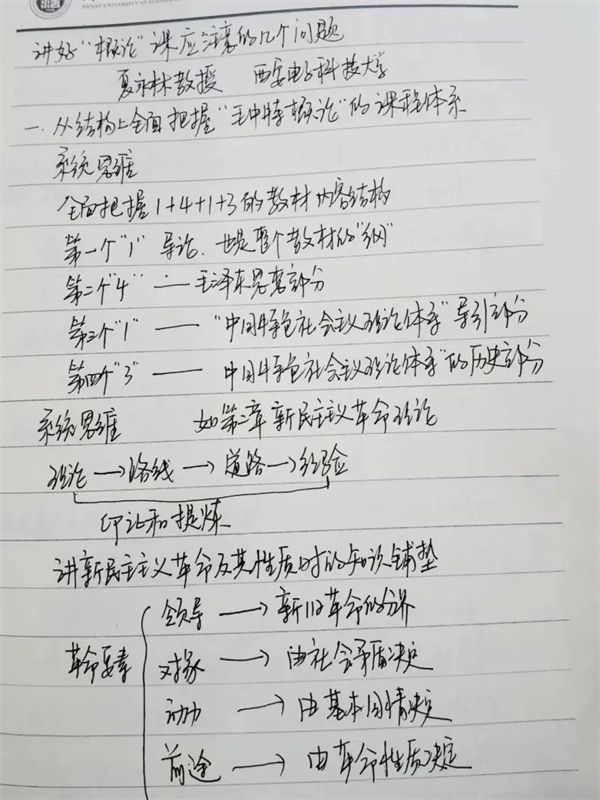 讲好“概论”课应注意的几个问题
夏永林教授 西安电子科技大学
一.从结构上全面把握“毛中特概论”的课程体系
系统思维
全面把握1+4+1+3的教材内容结构
第一个“1” 导论.也是整个教材的“纲”
第二个“4” —— 毛泽东思想部分
第三个“1” —— “中国特色社会主义理论体系”导引部分
第四个“3” —— 中国特色社会主义理论体系”的历史部分
系统思维 如第二章新民主主义革命理论
理论→路线→道路→经验
印证和提炼
讲新民主主义革命及其性质时的知识铺垫
革命要素
领导→新旧革命的分界
对象→由社会矛盾决定
动力→由基本国情决定
前途→由革命性质决定